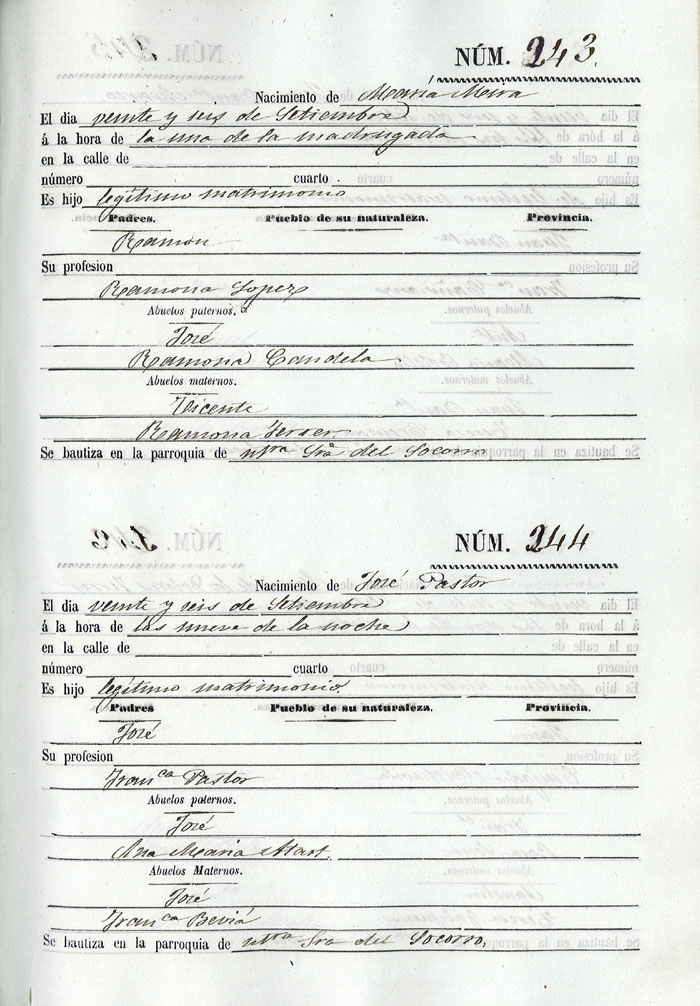 NÚM. 243.
Nacimiento de María Meira
El dia veinte y seis de Setiembre
á la hora de la una de la madrugada
en la calle de
número cuarto
Es hijo legítimo matrimonio
Padres. Pueblo de su naturaleza. Provincia.
Ramon
Su profesion
Ramona Lopez
Abuelos paternos.
José
Ramona Candela
Abuelos maternos.
Vicente
Ramona Ferrer.
Se bautiza en la parroquia de ntra Sra del Socorro
NÚM. 244
Nacimiento de José Pastor
El dia veinte y seis de Setiembre
á la hora de las nueve de la noche
en la calle de
número cuarto
Es hijo legítimo matrimonio.
Padres Pueblo de su naturaleza. Provincia.
José
Su profesion
Franca Pastor
Abuelos paternos.
José
Ana Maria
Abuelos Maternos.
José
Franca Beviá
Se bautiza en la parroquia de ntra Sra del Socorro.